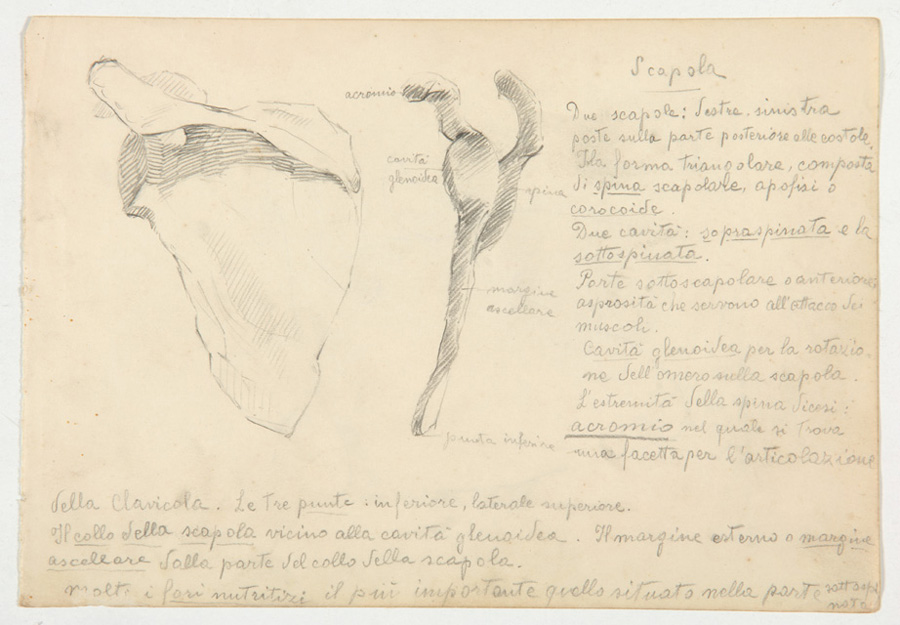 Scapola
acromio
cavità
glenoidea
spina
margine
ascellare
punta inferiore
Due scapole: destra, sinistra
poste sulla parte posteriore alle costole.
Di forma triangolare, composta
di spina scapolare, apofisi o
corocoide.
Due cavità: sopraspinata e la
sottospinata.
Parte sottoscapolare o anteriore,
asprosità che servono all'attacco dei
muscoli.
Cavità glenoidea per la rotazio-
ne dell'omero sulla scapola.
L'estremità della spina dicesi:
acromio nel quale si trova
una facetta per l'articolazione
della Clavicola. Le tre punte: inferiore, laterale superiore.
Il collo della scapola vicino alla cavità glenoidea. Il margine esterno o margine
ascellare dalla parte del collo della scapola.
molti i fori nutritizi il più importante quello situato nella parte sottospi
nata